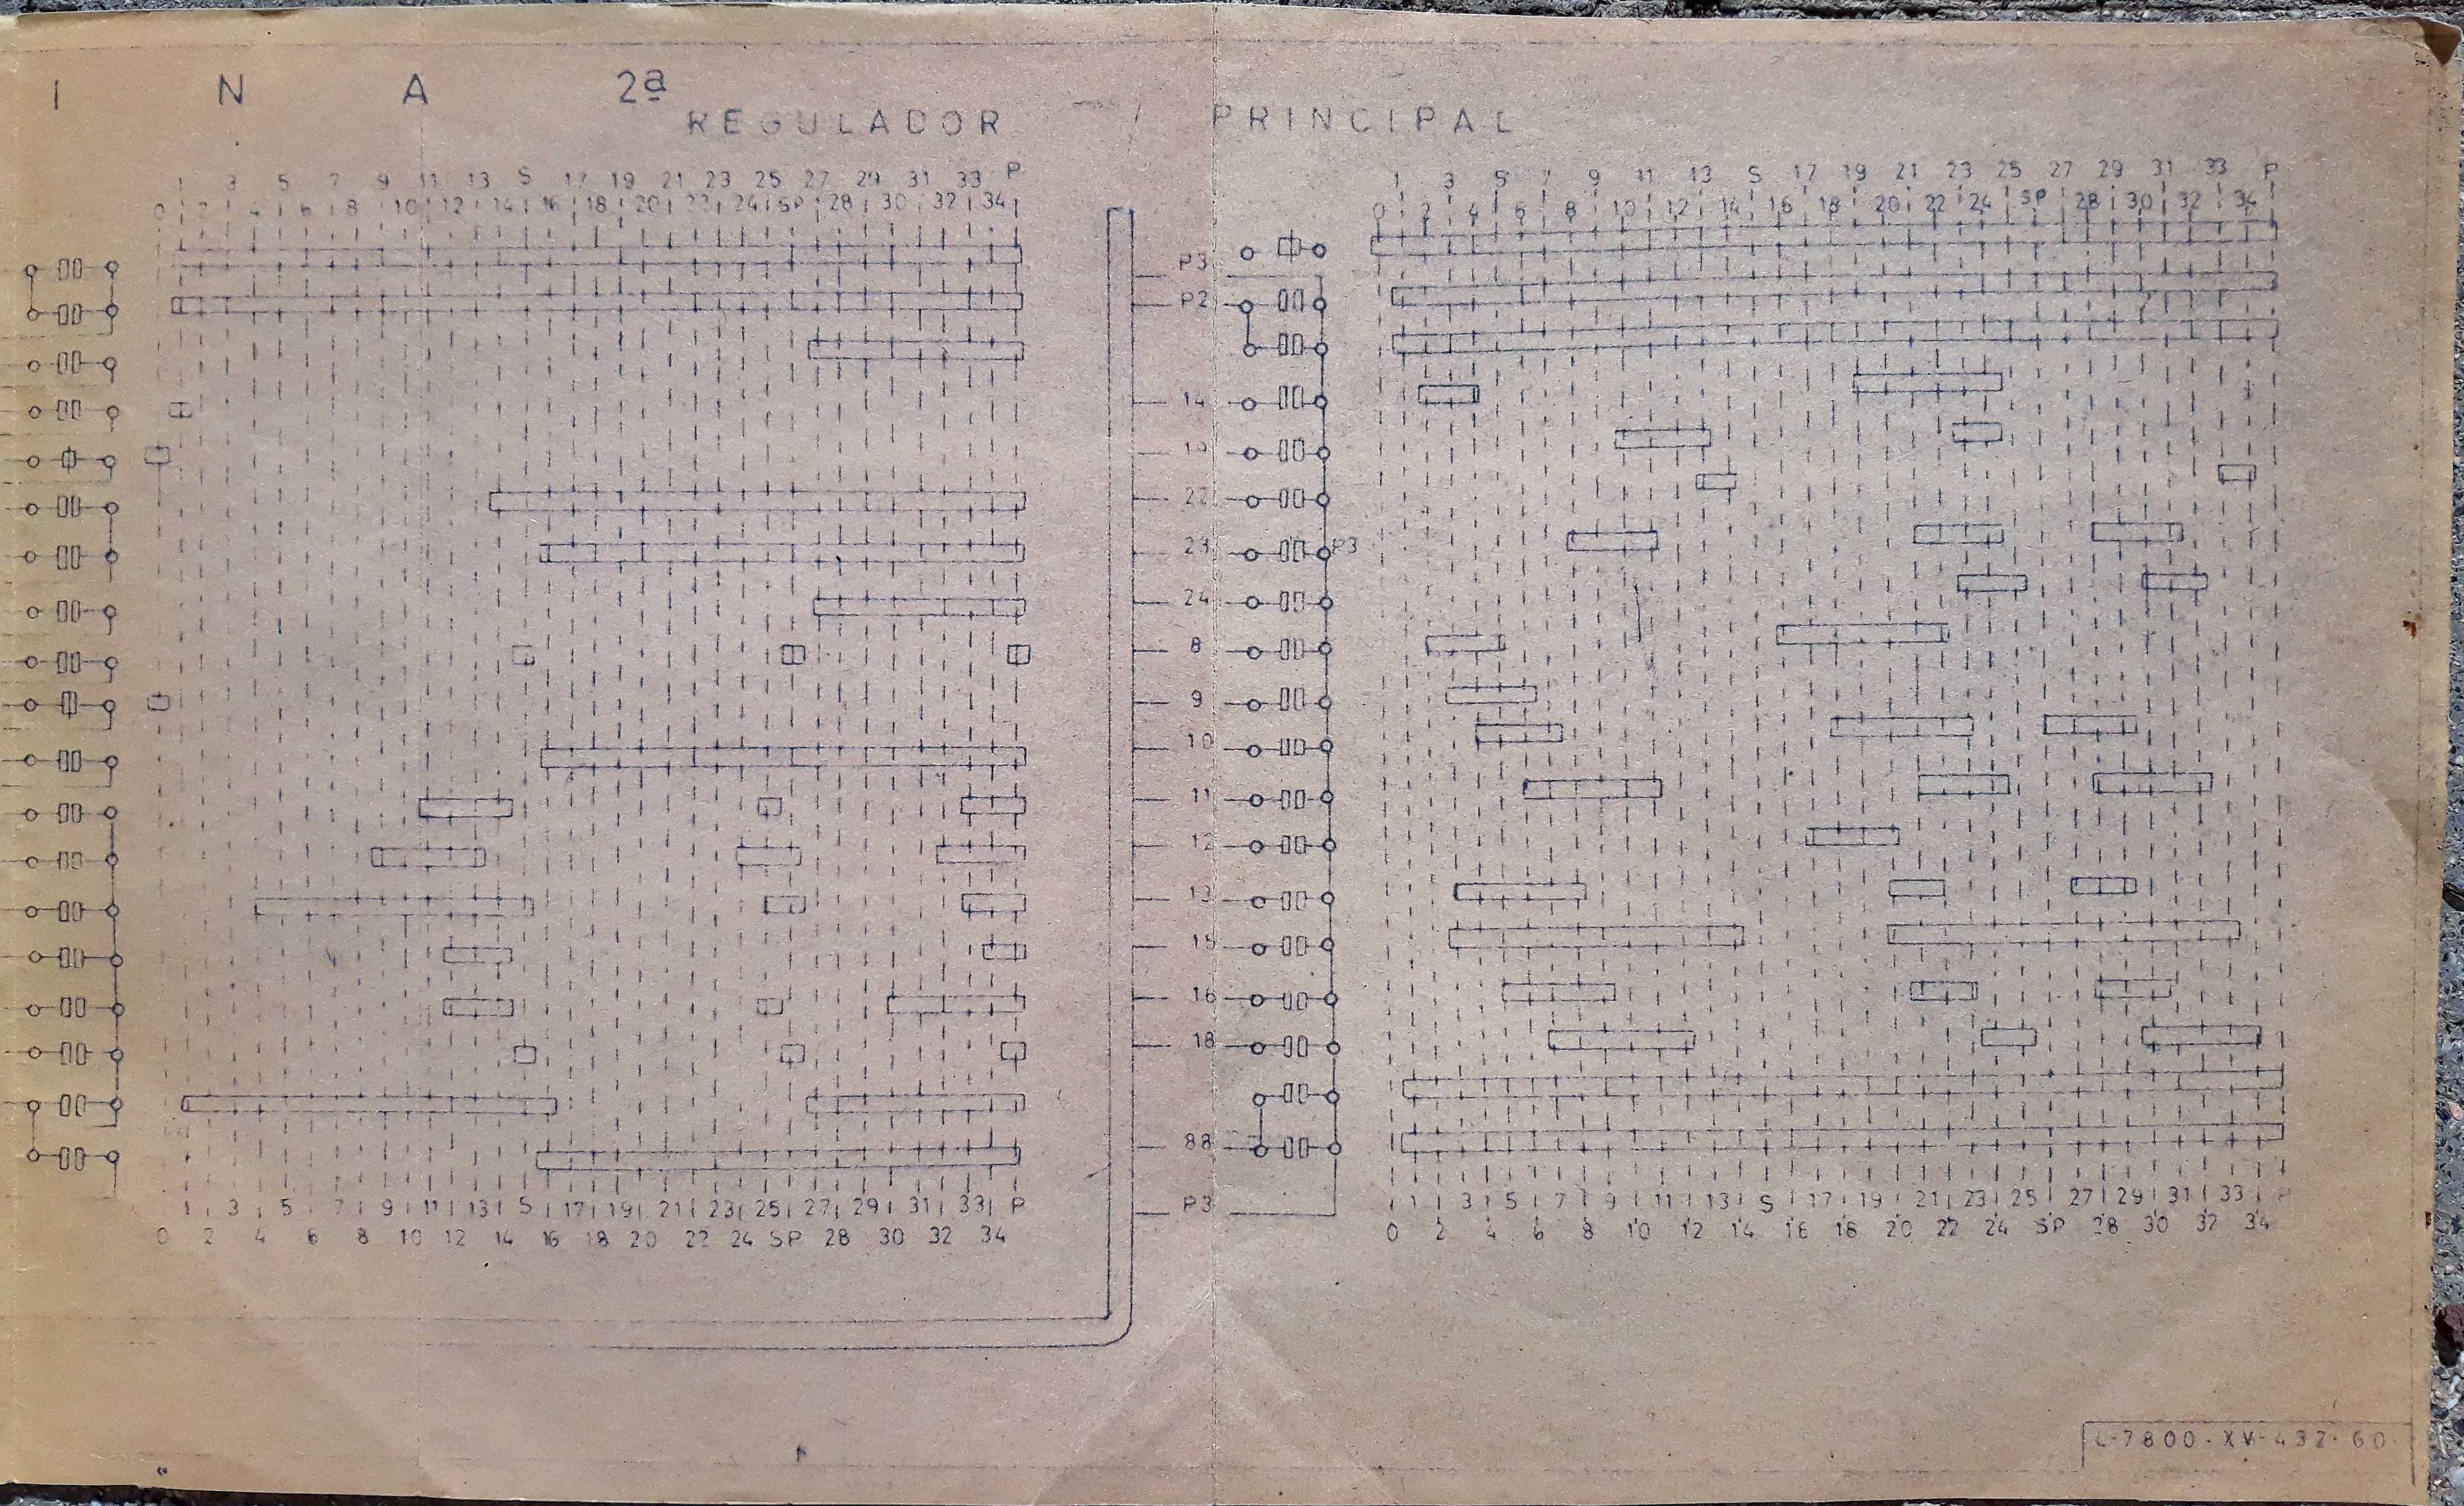 I N A 2ª
REGULADOR PRINCIPAL
1 3 5 7 9 11 13 S 17 19 21 23 25 27 29 31 33 P
0 2 4 6 8 10 12 14 16 18 20 22 24 SP 28 30 32 34
1 3 5 7 9 11 13 S 17 19 21 23 25 27 29 31 33 P
0 2 4 6 8 10 12 14 16 18 20 22 24 SP 28 30 32 34
P3
P2
14
19
22
23 P3
24
8
9
10
11
12
13
15
16
18
88
P3
1 3 5 7 9 11 13 S 17 19 21 23 25 27 29 31 33 P
0 2 4 6 8 10 12 14 16 18 20 22 24 SP 28 30 32 34
1 3 5 7 9 11 13 S 17 19 21 23 25 27 29 31 33 P
0 2 4 6 8 10 12 14 16 18 20 22 24 SP 28 30 32 34
L-7800-XV-432-60